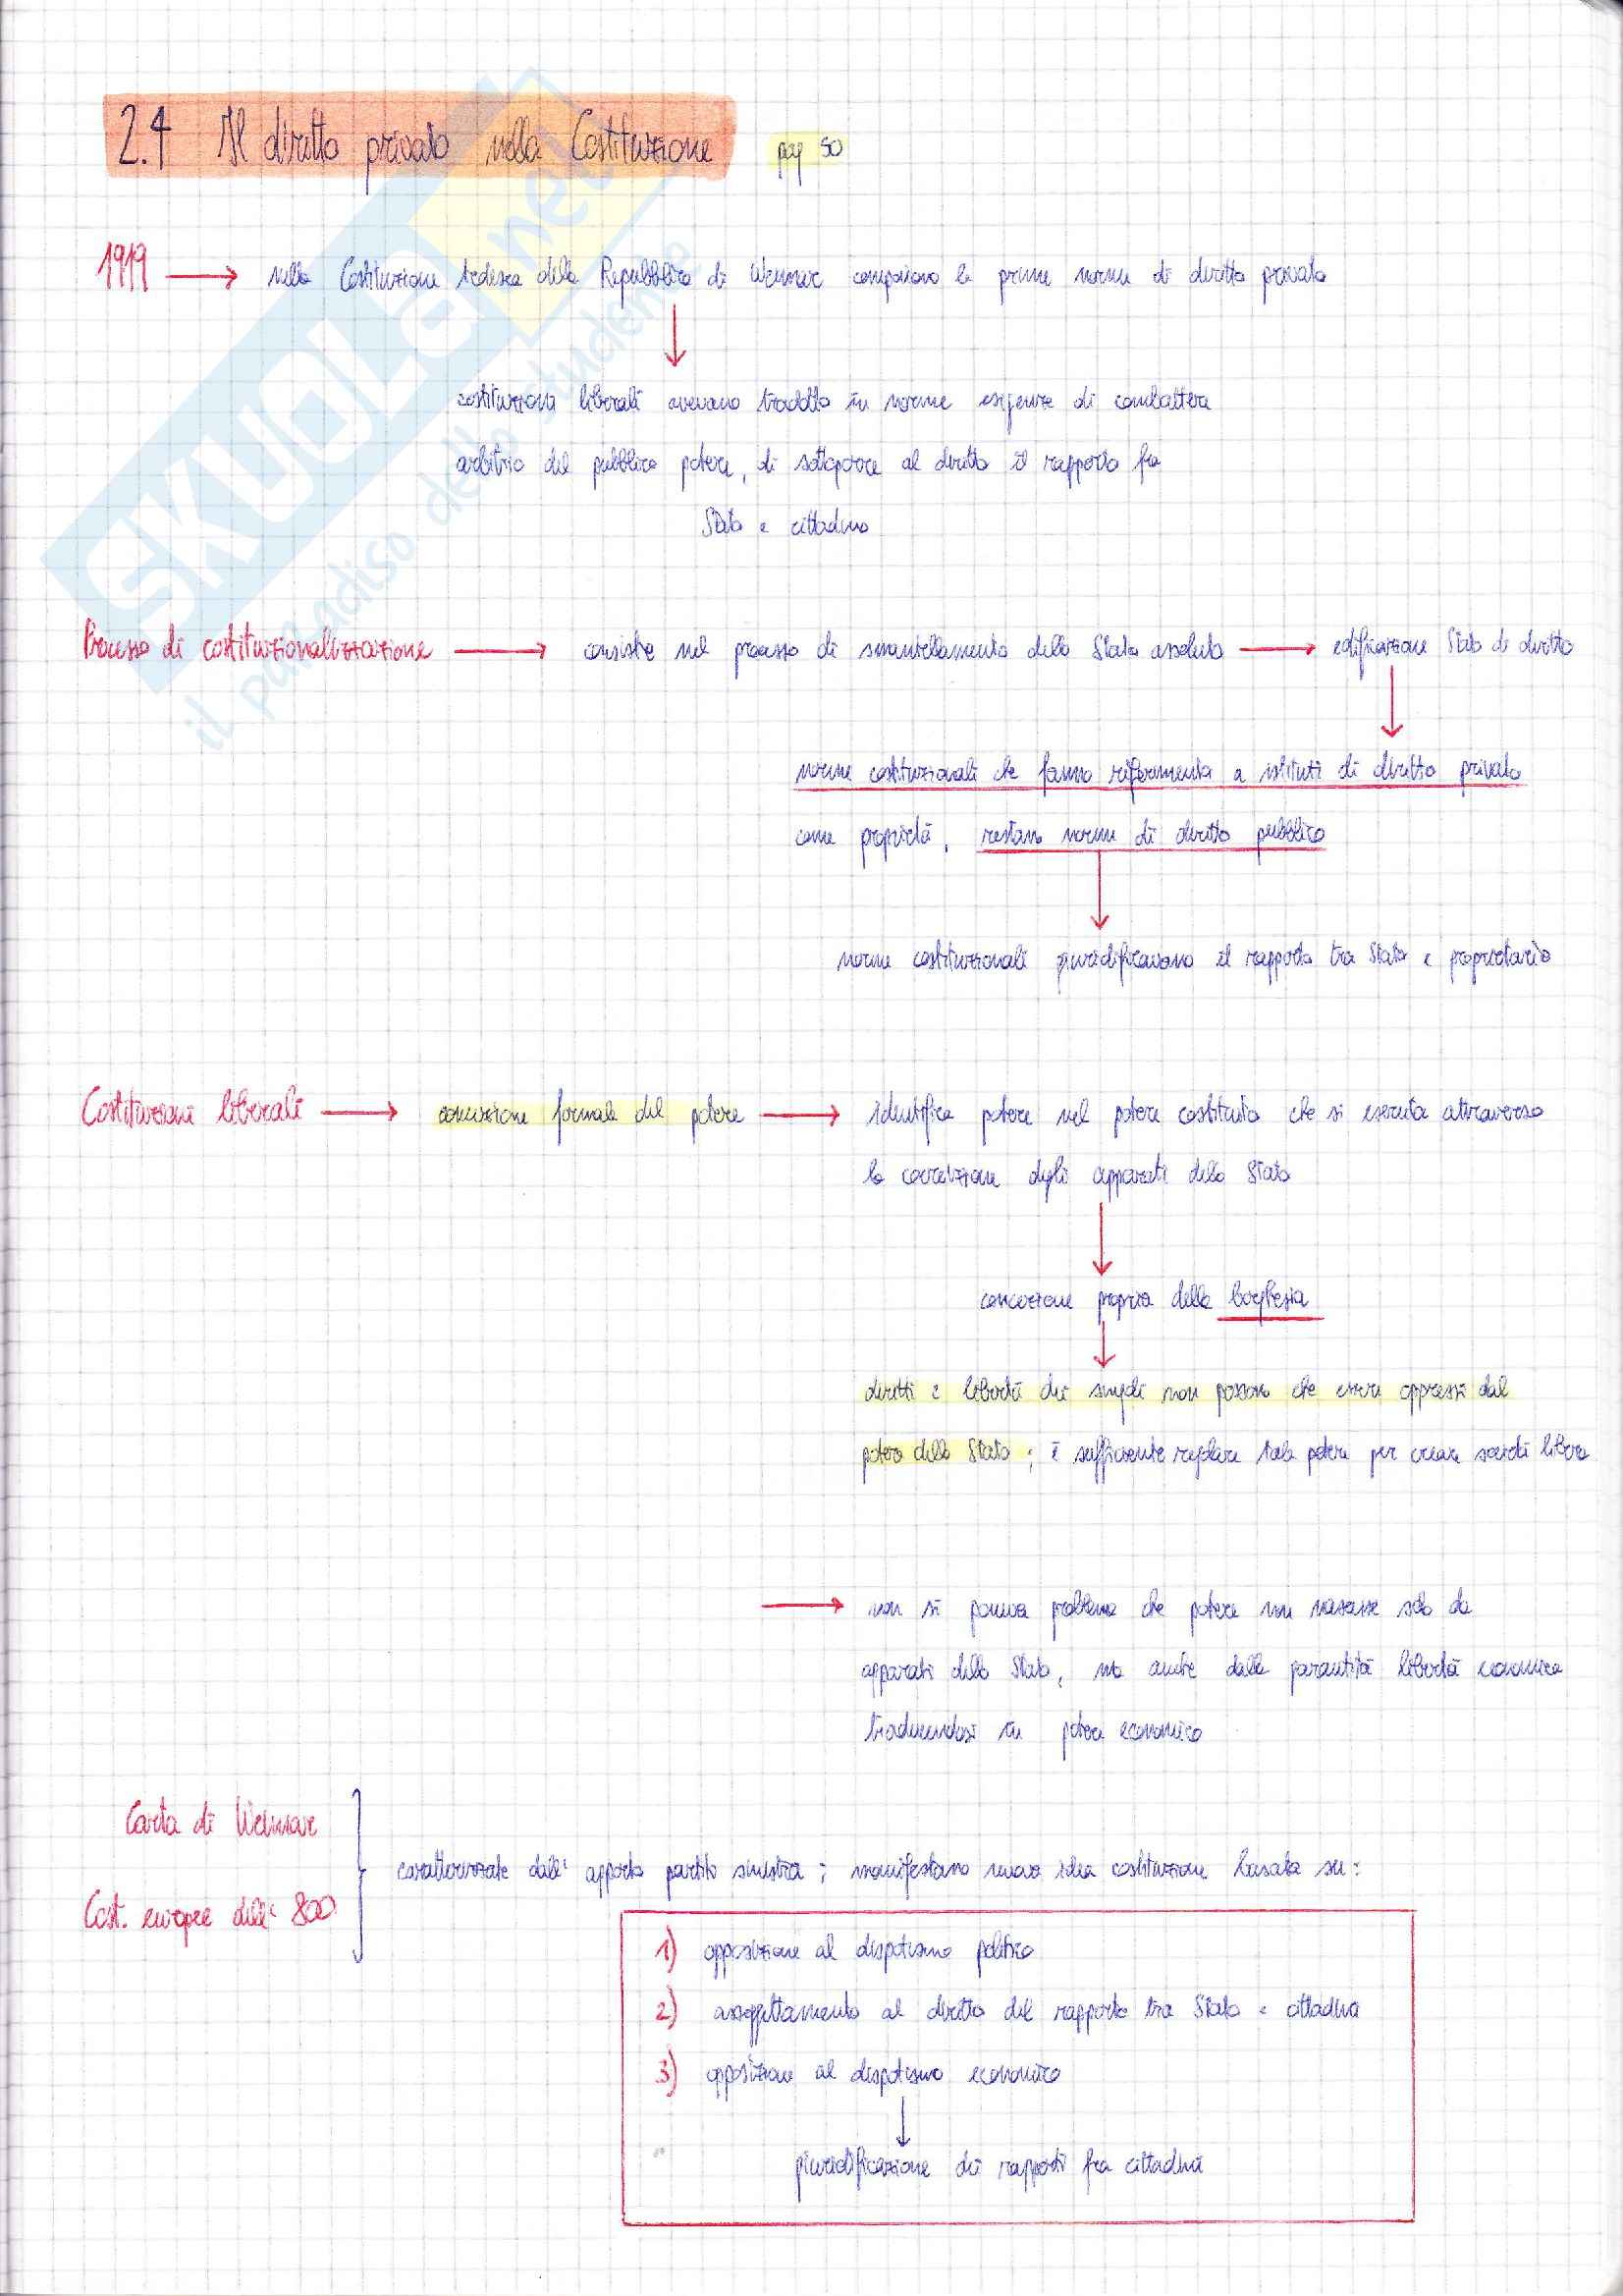 2.4 Il diritto privato nella Costituzione pag 50
1919 → nella Costituzione tedesca della Repubblica di Weimar compaiono le prime norme di diritto privato
costituzioni liberali avevano tradotto in norme esigenze di combattere
arbitrio del pubblico potere, di sottoporre al diritto il rapporto fra
Stato e cittadino
Processo di costituzionalizzazione → consiste nel processo di smantellamento dello Stato assoluto → edificazione Stato di diritto
norme costituzionali che fanno riferimento a istituti di diritto privato
come proprietà, restano norme di diritto pubblico
norme costituzionali giuridificavano il rapporto tra Stato e proprietario
Costituzioni liberali → concezione formale del potere → identifica potere nel potere costituito che si esercita attraverso
la coercizione degli apparati dello Stato
concezione propria della borghesia
diritti e libertà dei singoli non possono che essere oppressi dal
potere dello Stato; è sufficiente regolare tale potere per creare società libera
→ non si poneva problema che potere non nascesse solo da
apparati dello Stato, ma anche dalla garantità libertà economica
traducendosi in potere economico
Carta di Weimar
caratterizzate dall' apporto partito sinistra; manifestano nuova idea costituzione basata su:
Cost. europee dell' 800
1) opposizione al dispotismo politico
2) assoggettamento al diritto del rapporto tra Stato e cittadino
3) opposizione al dispotismo economico
giuridificazione dei rapporti fra cittadini
SKUOLA.net
il paradiso dello studente